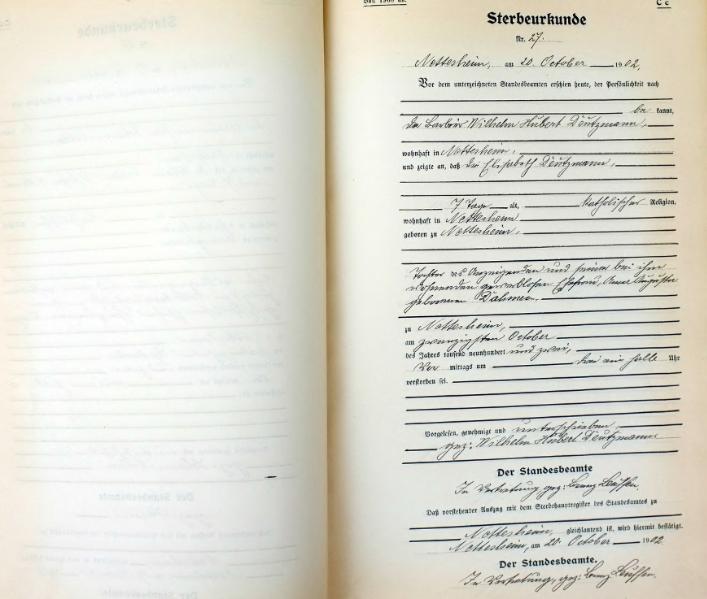 Sterbeurkunde
Nr. 27.
Nettersheim, am 20. October 1902.
Vor dem unterzeichneten Standesbeamten erschien heute, der Persönlichkeit nach
be kannt,
der Wilhelm Hubert Deutzmann,
wohnhaft in Nettersheim,
und zeigte an, daß die Elisabeth Deutzmann,
7 Tage alt, katholischer Religion,
wohnhaft in Nettersheim
geboren zu Nettersheim,
Tochter des Anzeigenden und seiner bei ihm
wohnenden gewerblosen Ehefrau, Anna Augusta
geborenen Dahmen.
zu Nettersheim,
am zwanzigsten October
des Jahres tausend neunhundert und zwei,
Vor mittags um drei ein halb Uhr
verstorben sei.
Vorgelesen, genehmigt und unterschrieben
gez: Wilhelm Hubert Deutzmann
Der Standesbeamte
In Vertretung gez:
Daß vorstehender Auszug mit dem Sterbehauptregister des Standesamtes zu
Nettersheim, gleichlautend ist, wird hiermit bestätigt.
Nettersheim, am 20. October 1902
Der Standesbeamte.
In Vertretung, gez: